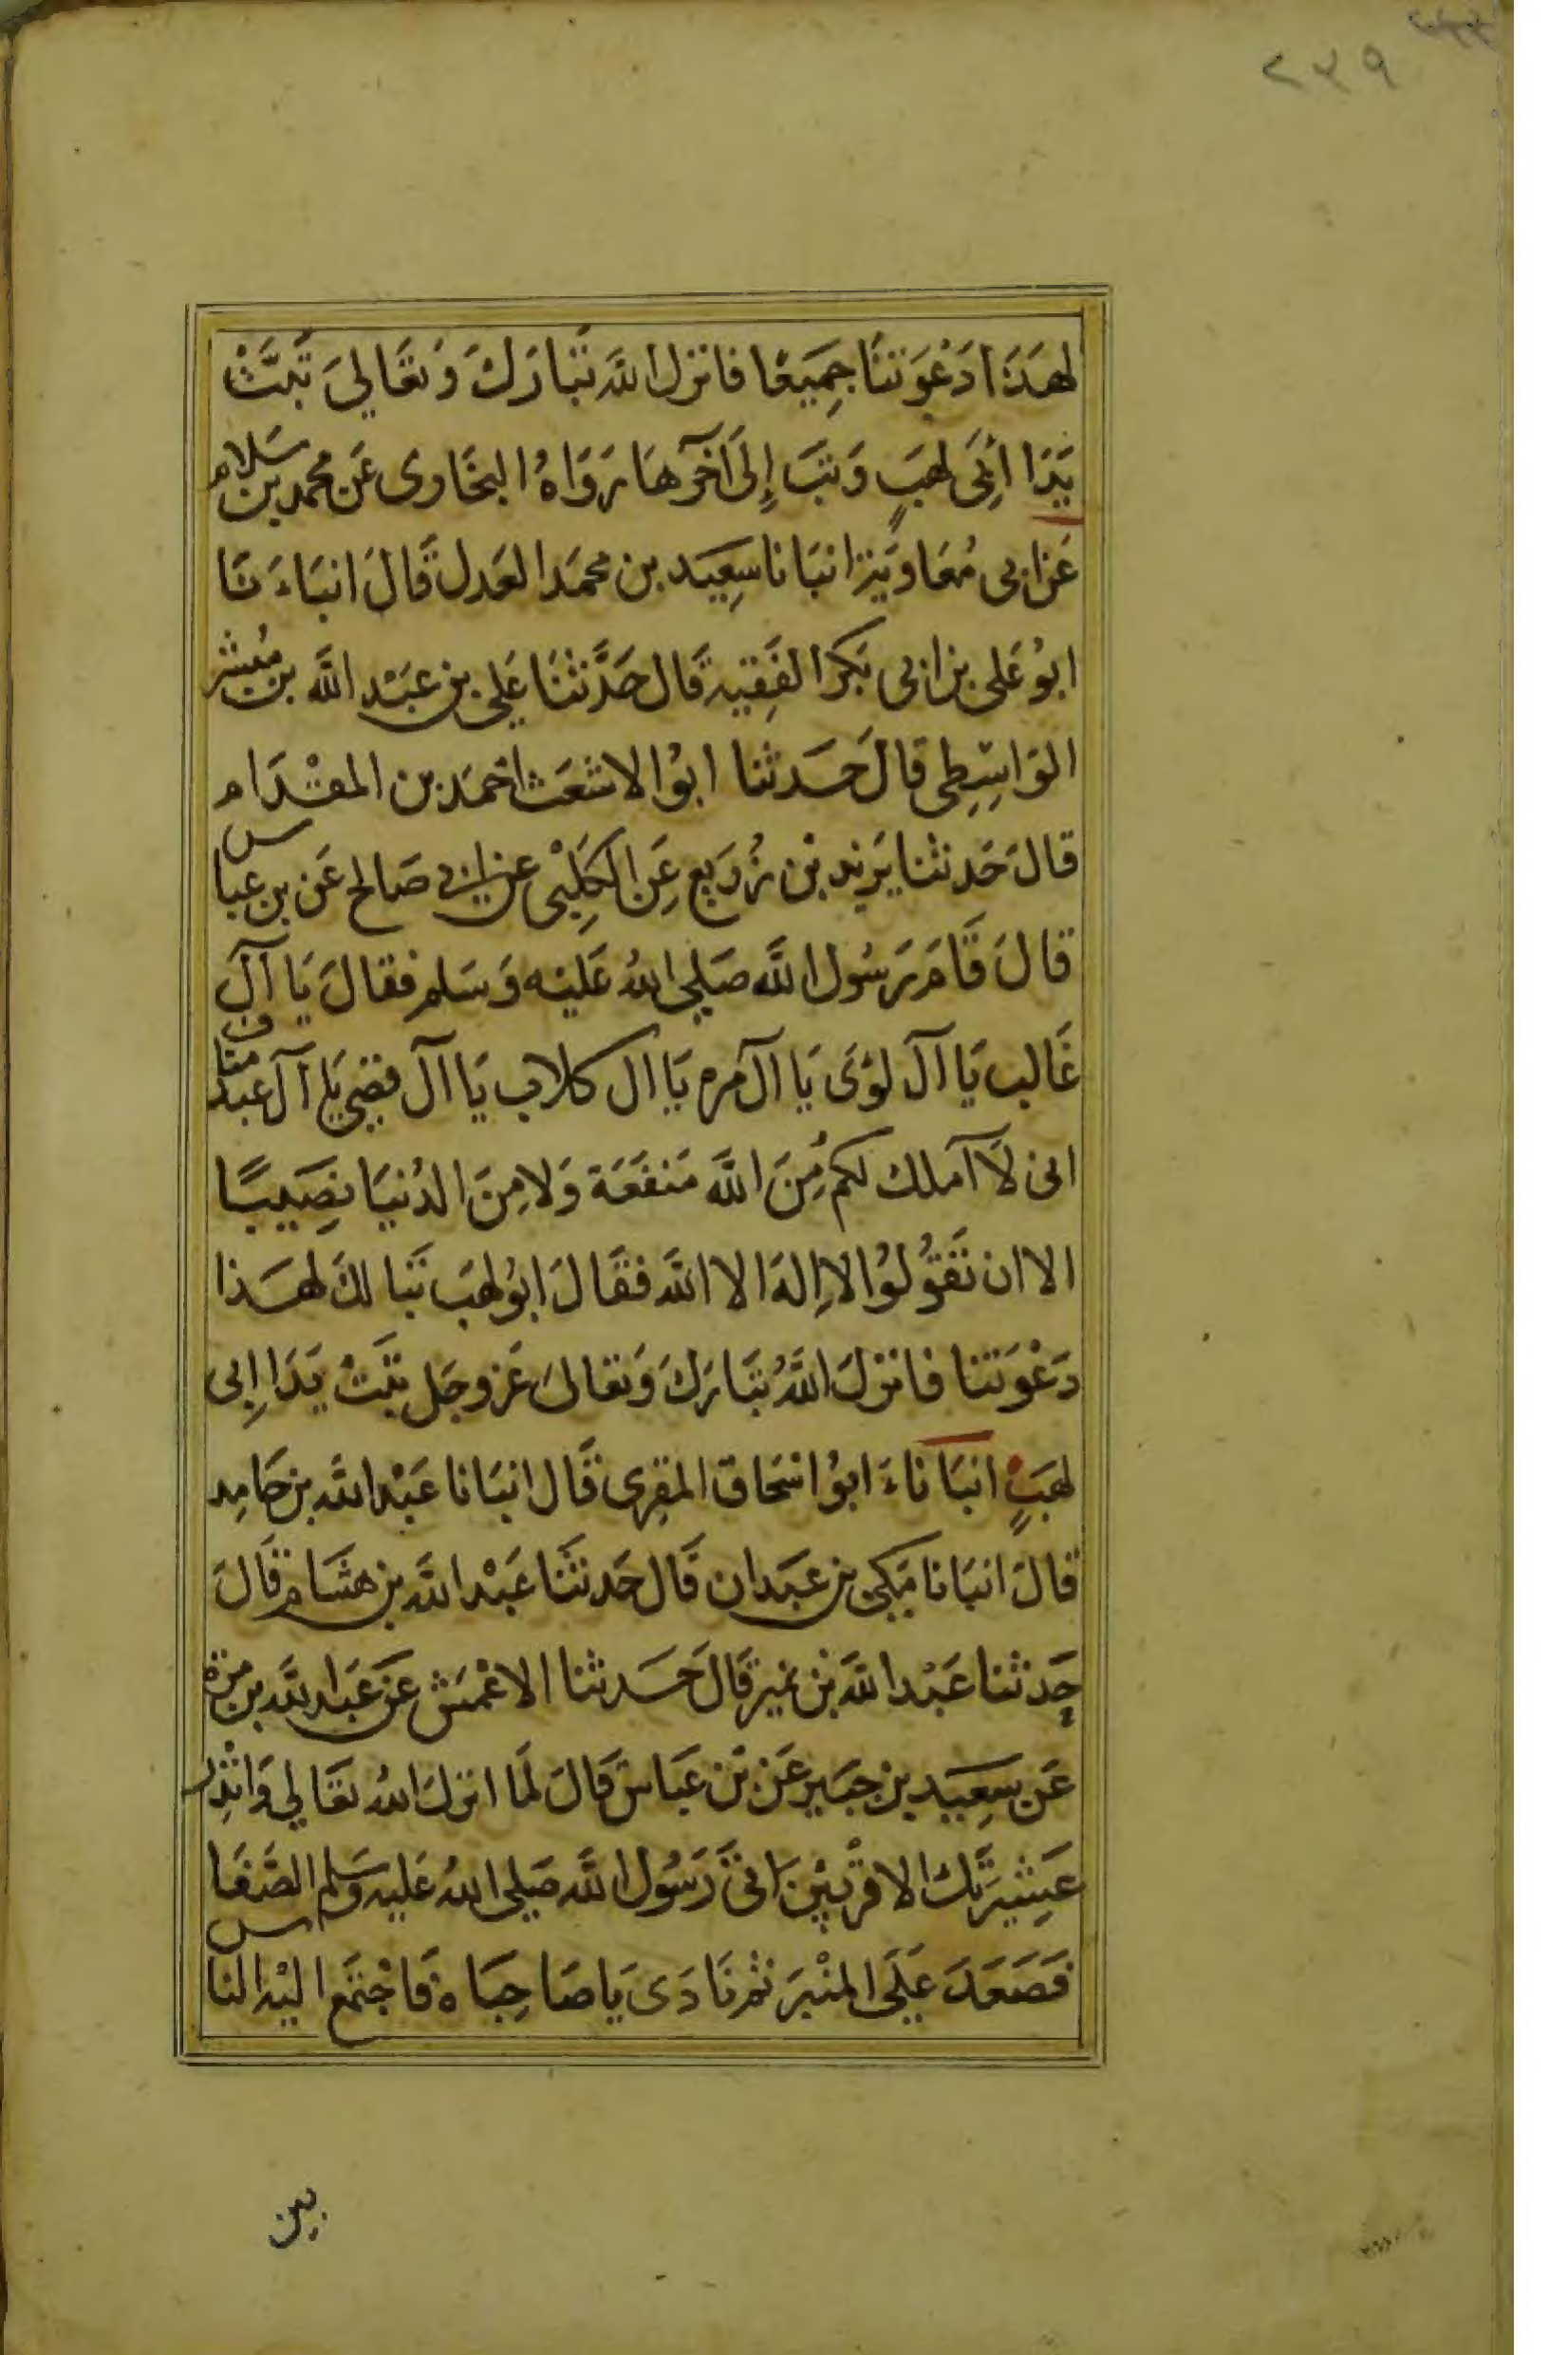 ٢٣٩
لهَذَا دَعَوتَنَا جَمِيعًا فانزل الله تَبَارَكَ وَتعَالىَ تَبَّتْ
يَدَا أبِى لهَبٍ وَتبَ إِلَى آخرِهَا رَوَاهُ البخَاوى عَن محمد بن سَلام
عَن ابى مُعَاويَة انبَانا سَعِيَد بن محمَد العَدل قَالَ انبَاءَنَا
ابوُ عَلى بن ابى بَكر الفَقِيه قَال حَدَّثنَا عَلِي بن عبَدْ الله بن مُبشر
الوَاسِطِى قالَ حَدثنا ابوُ الاشعَث احمَد بن المقْدَام
قالَ حَدثنا يَزيد بْن زُرَيع عَن الكَلِبْى عَن ابى صَالح عَن بن عبَاس
قالَ قَامَ رَسُول الله صَلى اللهُ عَليْه وَسَلم فقالَ يَا آلَ
غَالب يَا آلَ لوُىَ يَا آل مره يَا ال كلاب يَا آل قصَي يَا آل عَبدُ مَناف
انى لَا آملك لكم مُِنَ الله مَنفعَة وَلا مِنَ الدُنيَا نصِيبًا
الا ان تَقوُلوُا لا اِلهَ الا الله فقَالَ ابوُ لهَب تَبا لكَ لهَذا
دَعْوَتنا فانزلَ اللهُ تبَارَكَ وَتعالىَ عَز وجَل تبَتْ يَدَا اِبى
لهَبٍ انبَاناءَ ابوُ اسْحَاق المقِرى قَال انبَانا عَبْد الله بن حَامِد
قالَ انبَانا مَكِى بن عبَدان قَال حَدثنَا عَبْد الله بن هشَام قَالَ
حَدثنا عَبْد الله بْن نمير قَالَ حَدثنا الاعْمَش عَن عَبَد الله بن مره
عَن سَعِيَيد بن جبَير عَن بْن عَبَاس قَالَ لمَا انزلَ اللهُ تعَالي وَانْذِر
عَشِيرَتَك الاقرْبيْنَ اتىَ رَسُول الله صَلى اللهُ عَليه وَسَلم الصَفَا
فَصَعَدَ عَلىَ المنْبرَ ثم نَادَى يَا صَاحِبَاه فَاجْتمَع اليْه الناس
بين